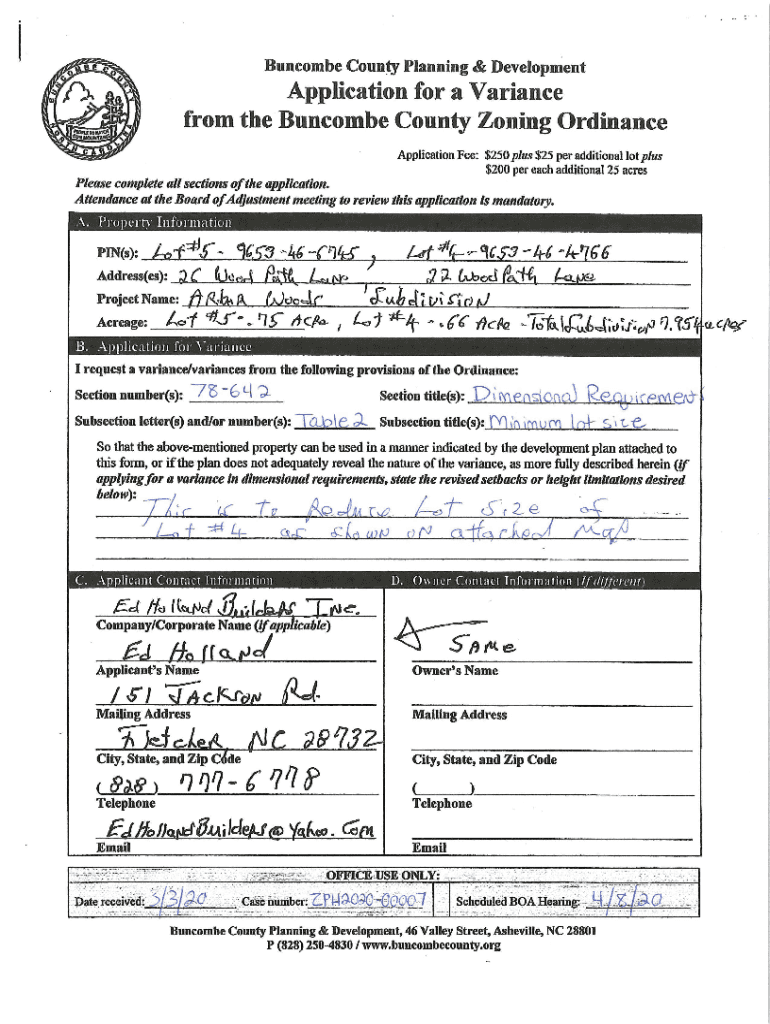 Buncombe County Planning & Development
Application for a Variance
from the Buncombe County Zoning Ordinance
BUNCOMBE COUNTY
NORTH CAROLINA
Application Fee: $250 plus $25 per additional lot plus
$200 per each additional 25 acres
Please complete all sections of the application.
Attendance at the Board of Adjustment meeting to review this application is mandatory.
A. Property Information
PIN(s): Lot #5 - 9653-46-6745, Lot #4 - 9653-46-4766
Address(es): 26 Wood Path Lane, 22 Wood Path Lane
Project Name: ARboR Woods Subdivision
Acreage: Lot #5 - .75 Acre, Lot #4 - .66 Acre - Total Subdivision 7.954 acres
B. Application for Variance
I request a variance/variances from the following provisions of the Ordinance:
Section number(s): 78-642 Section title(s): Dimensional Requirement
Subsection letter(s) and/or number(s): Table 2 Subsection title(s): Minimum lot size
So that the above-mentioned property can be used in a manner indicated by the development plan attached to
this form, or if the plan does not adequately reveal the nature of the variance, as more fully described herein (if
applying for a variance in dimensional requirements, state the revised setbacks or height limitations desired
below):
This is to Reduce Lot Size of
Lot #4 as shown on attached Map
C. Applicant Contact Information D. Owner Contact Information (if different)
Ed Holland Builders Inc.
Company/Corporate Name (if applicable)
Ed Holland Same
Applicant's Name Owner's Name
151 Jackson Rd.
Mailing Address Mailing Address
Fletcher, NC 28732
City, State, and Zip Code City, State, and Zip Code
(828) 777-6778 ( )
Telephone Telephone
EdHollandBuilders@yahoo.com
Email Email
OFFICE USE ONLY:
Date received: 3/3/20 Case number: ZPH2020-00007 Scheduled BOA Hearing: 4/8/20
Buncombe County Planning & Development, 46 Valley Street, Asheville, NC 28801
P (828) 250-4830 / www.buncombecounty.org